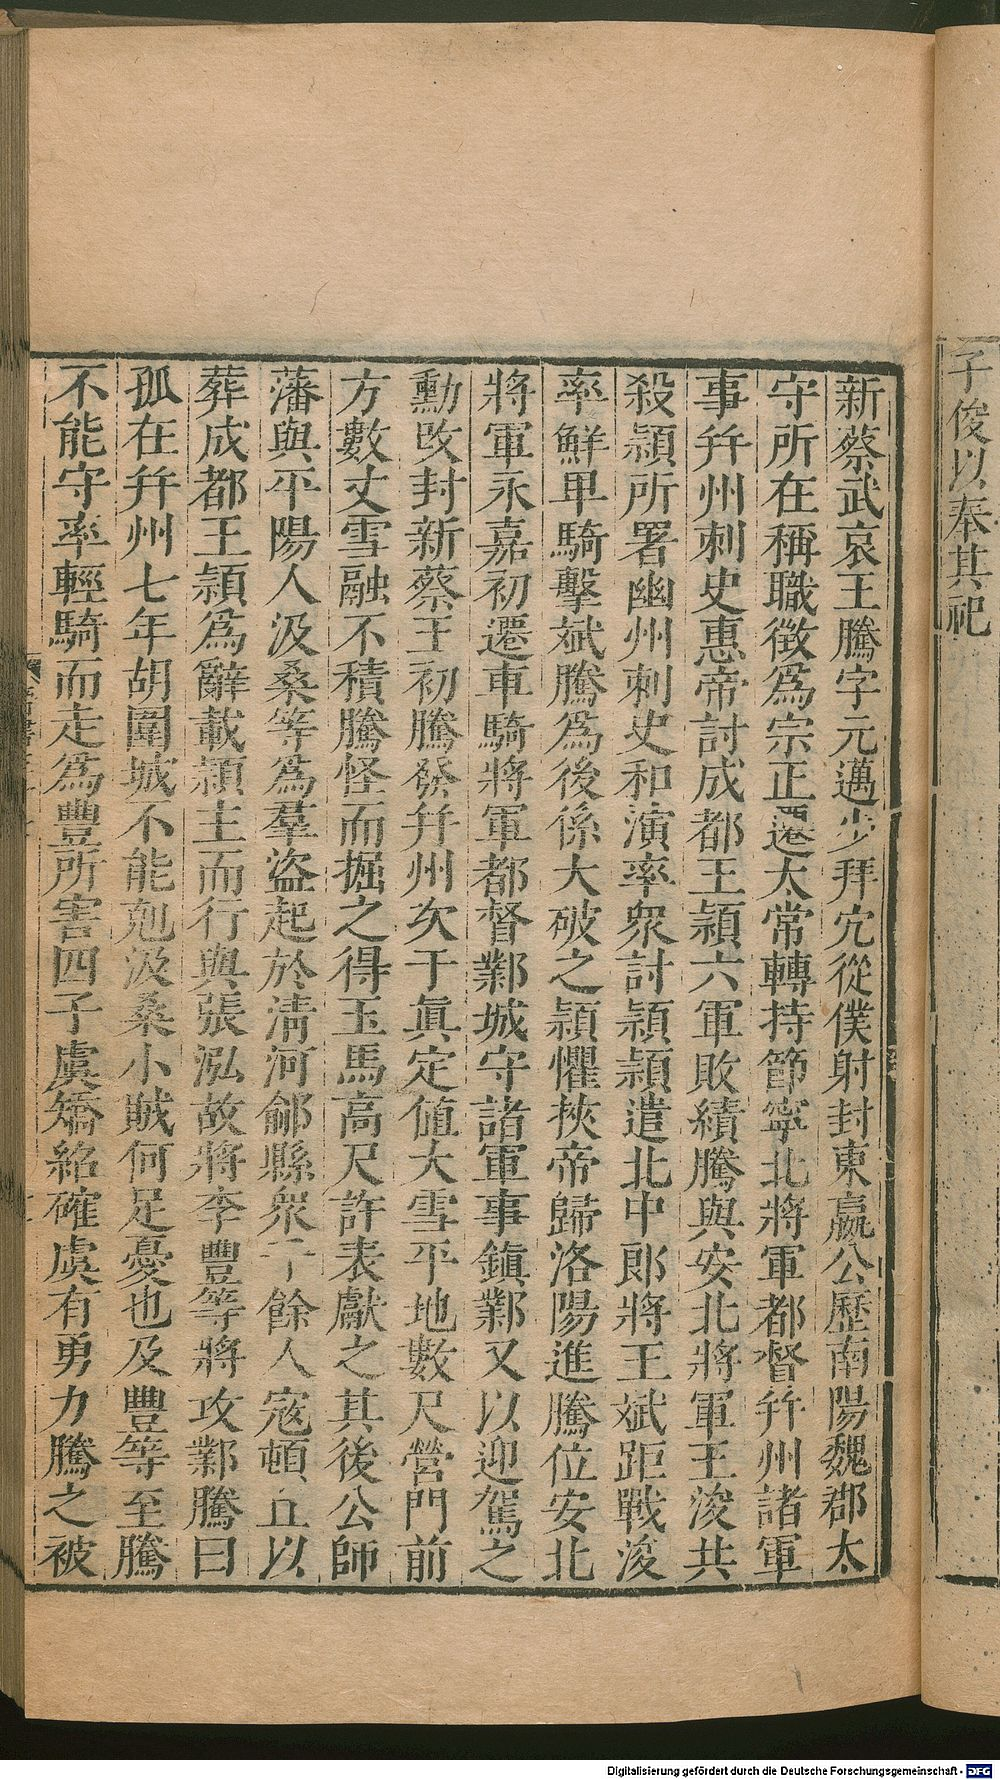 子俊以奉其祀
新蔡武哀王騰字元邁少拜宂從僕射封東嬴公歷南陽魏郡太
守所在稱職徵爲宗正遷太常轉持節寧北將軍都督幷州諸軍
事幷州刺史惠帝討成都王穎六軍敗績騰與安北將軍王浚共
殺穎所署幽州刺史和演率衆討穎穎遣北中郎將王斌距戰浚
率鮮卑騎擊斌騰爲後係大破之穎懼挾帝歸洛陽進騰位安北
將軍永嘉初遷車騎將軍都督鄴城守諸軍事鎭鄴又以迎駕之
勳改封新蔡王初騰發幷州次于眞定値大雪平地數尺營門前
方數丈雪融不積騰怪而掘之得玉馬高尺許表獻之其後公師
藩與平陽人汲桑等爲羣盜起於淸河鄃縣衆千餘人寇頓丘以
葬成都王穎爲辭載穎主而行與張泓故將李豐等將攻鄴騰曰
孤在幷州七年胡圍城不能尅汲桑小賊何足憂也及豐等至騰
不能守率輕騎而走爲豐所害四子虞矯紹確虞有勇力騰之被
Digitalisierung gefördert durch die Deutsche Forschungsgemeinschaft - DFG